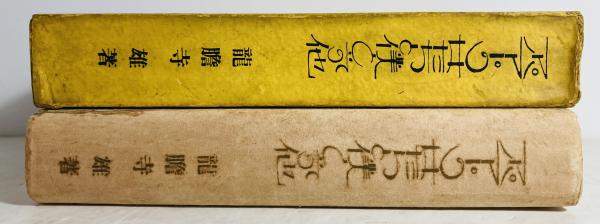 アパアトの女たちと僕と其他
龍膽寺雄著
アパアトの女たちと僕と其他
龍膽寺雄著